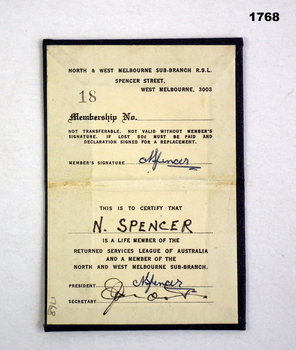 1768
NORTH & WEST MELBOURNE SUB-BRANCH R.S.L.
SPENCER STREET,
WEST MELBOURNE, 3003
18
Membership No.
NOT TRANSFERABLE. NOT VALID WITHOUT MEMBER'S
SIGNATURE. IF LOST 50C MUST BE PAID AND
DECLARATION SIGNED FOR A REPLACEMENT.
MEMBER'S SIGNATURE NSpencer
THIS IS TO CERTIFY THAT
N. SPENCER
IS A LIFE MEMBER OF THE
RETURNED SERVICES LEAGUE OF AUSTRALIA
AND A MEMBER OF THE
NORTH AND WEST MELBOURNE SUB-BRANCH.
PRESIDENT NSpencer
SECRETARY
1768